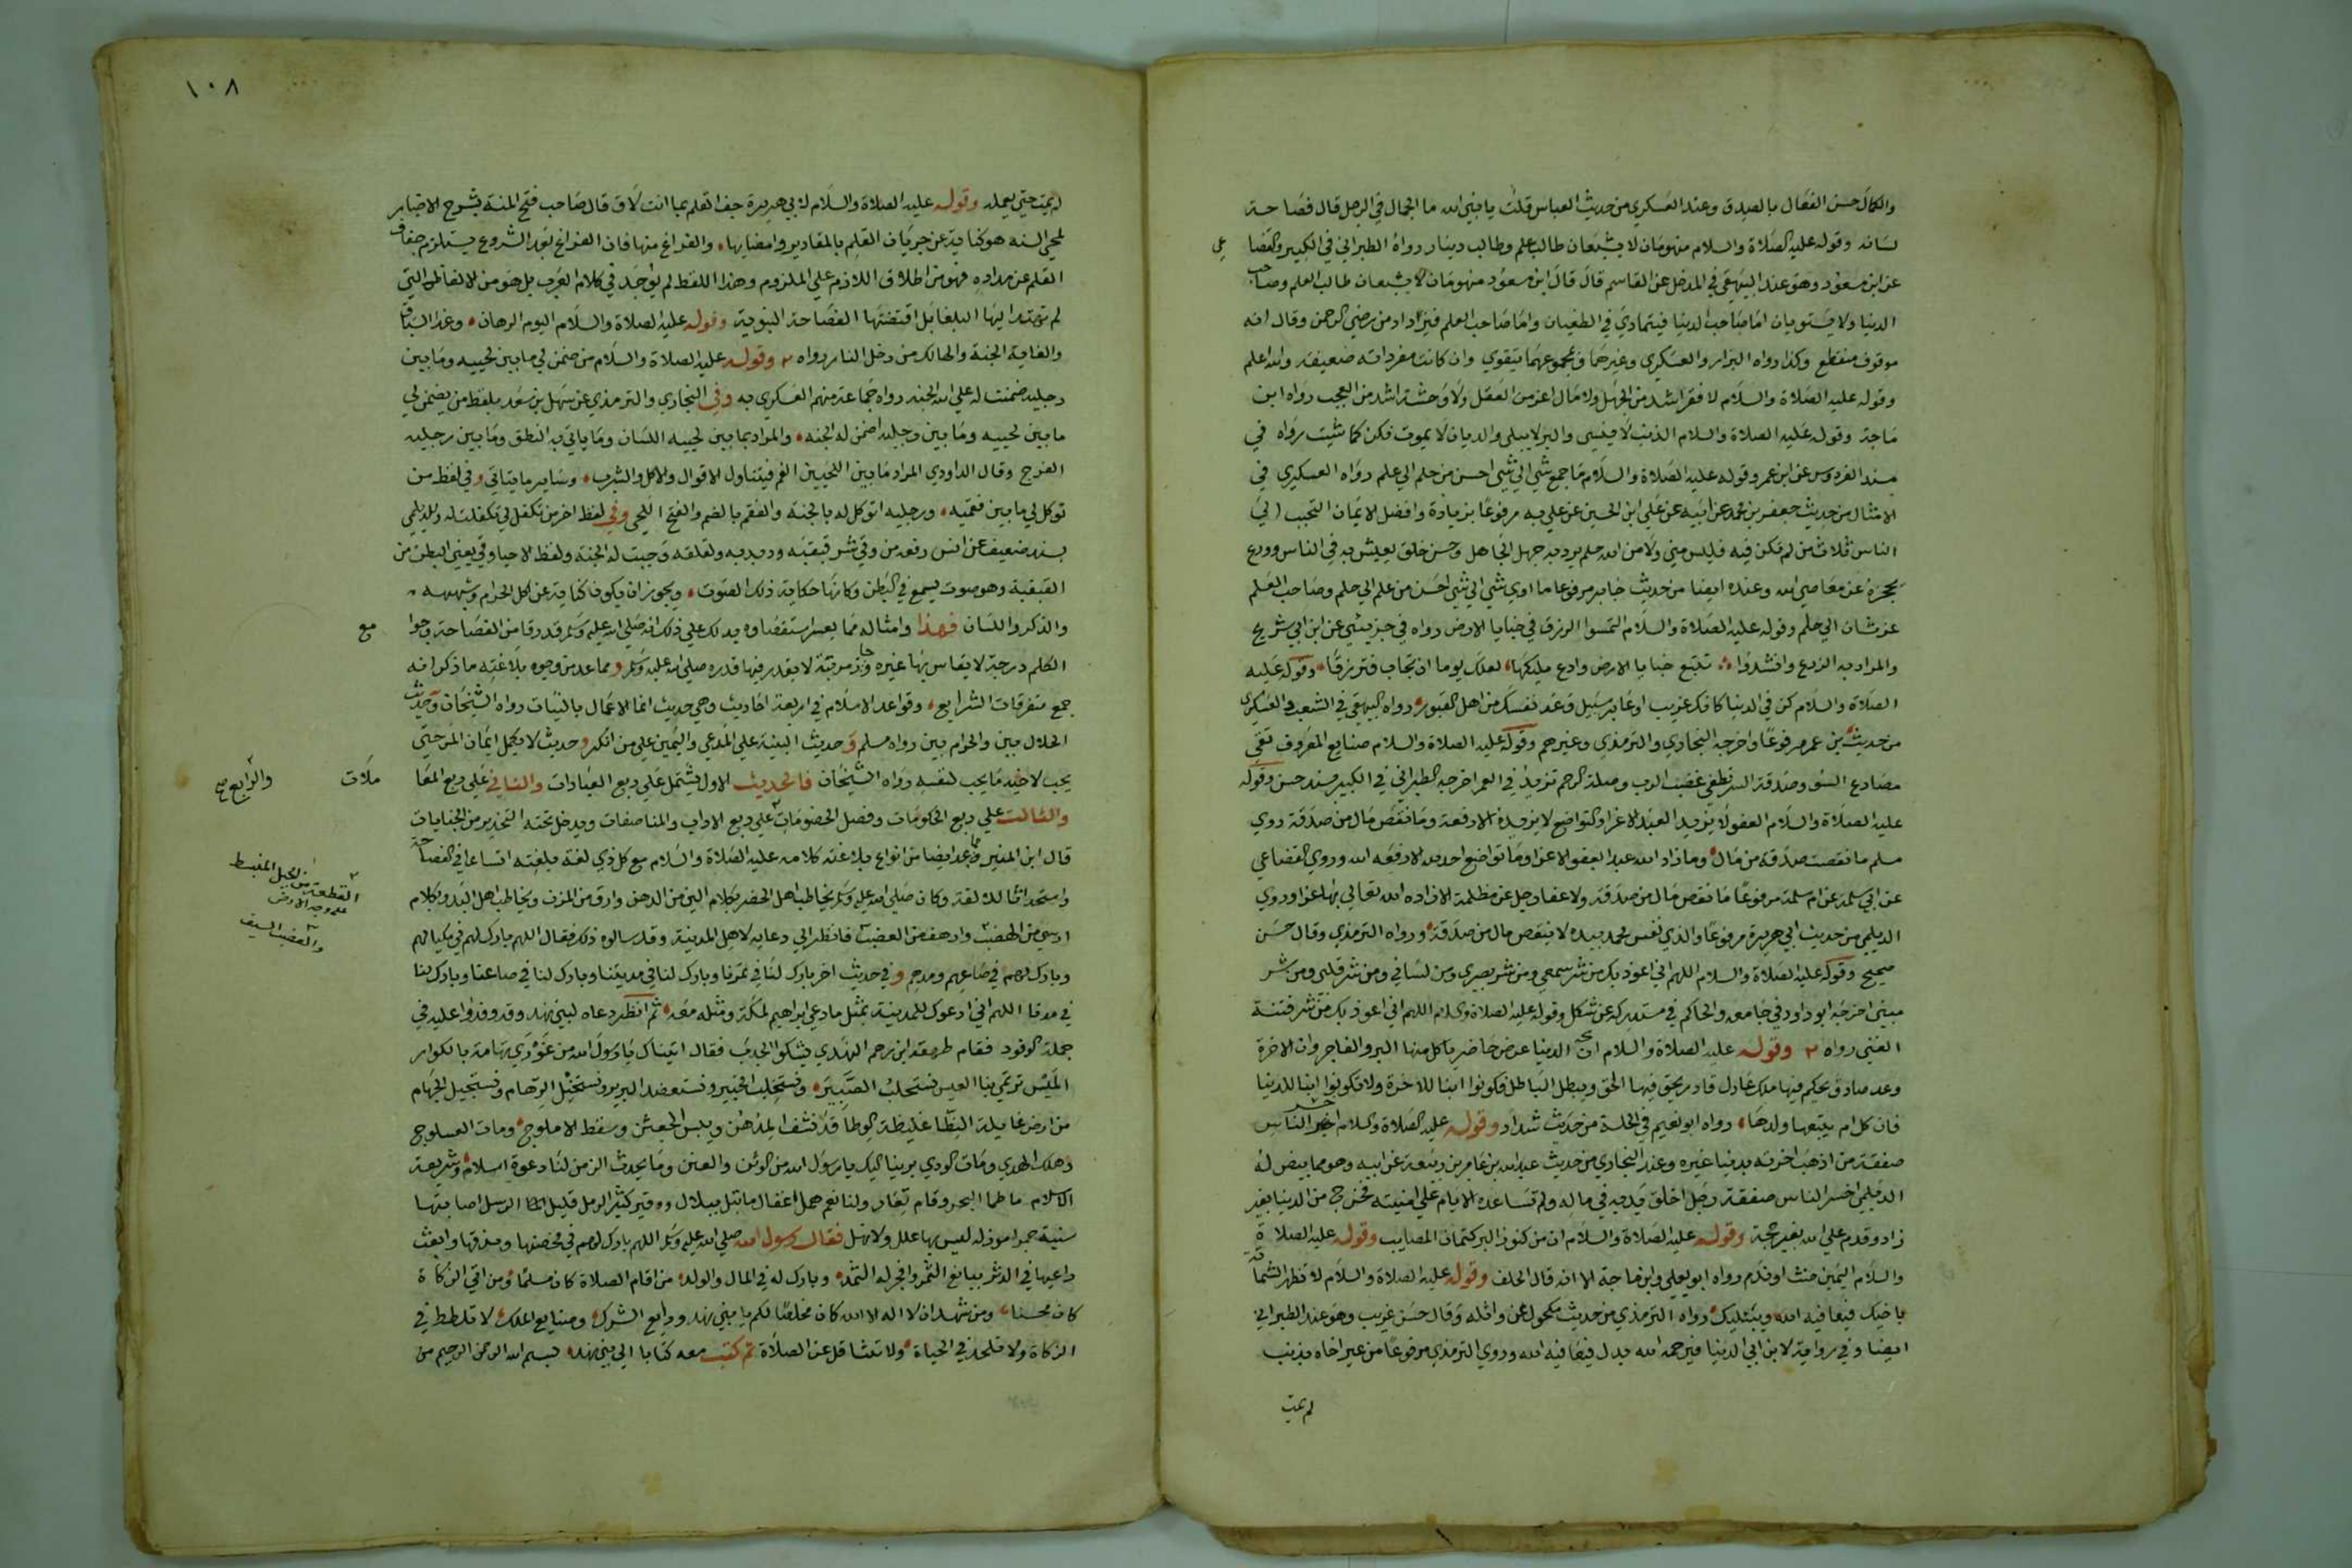 والكمال حسن الفعال بالصدق وعند العسكري من حديث العباس قلت يا نبي الله ما الجمال في الرجل قال فصاحة
لسانه وقوله عليه الصلاة والسلام منهومان لا يشبعان طالب علم وطالب دينار رواه الطبراني في الكبير والقضا
عي
عن ابن مسعود وهو عند البيهقي في المدخل عن القاسم قال قال ابن مسعود منهومان لا يشبعان طالب العلم وصاحب
الدنيا ولا يستويان اما صاحب الدنيا فيتمادي في الطغيان واما صاحب العلم فيزداد من رضي الرحمن وقال انه
موقوف منقطع وكذا رواه البزار والعسكري وغيرهما وبمجموعهما يتقوي وان كانت مفرداته ضعيفة والله اعلم
وقوله عليه الصلاة والسلام لا فقر اشد من الجهل ولا مال اعز من العقل ولا وحشة اشد من العجب رواه ابن
ماجة وقوله عليه الصلاة والسلام الذنب لا ينسي والبر لا يبلي والديان لا يموت فكن كما شيت رواه في
مسند الفردوس عن ابن عمر وقوله عليه الصلاة والسلام ما جمع شي الي شي احسن من حلم الي علم رواه العسكري في
الامثال من حديث جعفر بن محمد عن ابيه عن علي ابن الحسين عن علي به مرفوعا بزيادة وافضل الايمان التحبب الي
الناس ثلاث من لم تكن فيه فليس مني ولا من الله حلم يرد به جهل الجاهل وحسن خلق يعيش به في الناس وورع
يحجزه عن معاصي الله وعنده ايضا من حديث جابر مرفوعا ما اوي شي الي شي احسن من علم الي حلم وصاحب العلم
عرشان الي حلم وقوله عليه الصلاة والسلام التمسوا الرزق في خبايا الارض رواه في جز بيبي عن ابن ابي شريح
والمراد به الزرع وانشدوا تتبع خبايا الارض وادع مليكها لعلك يوما ان تجاب فترزقا وقوله عليه
الصلاة والسلام كن في الدنيا كانك غريب او عابر سبيل وعد نفسك من اهل القبور رواه البيهقي في الشعب والعسكري
من حديث بن عمر مرفوعا واخرجه البخاري والترمذي وغيرهم وقوله عليه الصلاة والسلام صنايع المعروف تقي
مصارع السو وصدقة السر تطفي غضب الرب وصلة الرحم تزيد في العمر اخرجه الطبراني في الكبير بسند حسن وقوله
عليه الصلاة والسلام العفو لا يزيد العبد الا عزا والتواضع لا يزيده الا رفعة وما نقص مال من صدقة روي
مسلم ما نقصت صدقة من مال وما زاد الله عبدا بعفو الا عزا وما تواضع احد لله الا رفعه الله وروي القضاعي
عن ابي سلمة عن ام سلمة مرفوعا ما نقص مال من صدقة ولا عفا رجل عن مظلمة الا زاده الله تعالي بها عزا وروي
الديلمي من حديث ابي هريرة مرفوعا والذي نفس محمد بيده لا ينقص مال من صدقة ورواه الترمذي وقال حسن
صحيح وقوله عليه الصلاة والسلام اللهم اني اعوذ بك من شر سمعي ومن شر بصري ومن لساني ومن شر قلبي ومن شر
منيي اخرجه ابو داود في جامعه والحاكم في مستدركه عن شكل وقوله عليه الصلاة والسلام اللهم اني اعوذ بك من شر فتنة
الغني رواه وقوله عليه الصلاة والسلام ان الدنيا عرض حاضر ياكل منها البر والفاجر وان الاخرة
وعد صادق يحكم فيها ملك عادل قادر يحق فيها الحق ويبطل الباطل فكونوا ابنا الاخرة ولا تكونوا ابنا الدنيا
فان كل ام يتبعها ولدها رواه ابو نعيم في الحلية من حديث شداد وقوله عليه الصلاة والسلام اخسر الناس
صفقة من اذهب اخرته بدنيا غيره وعند البخاري من حديث عبد الله بن عامر بن ربيعة عن ابيه وهو مما بيض له
الديلمي اخسر الناس صفقة رجل اخلق يديه في ماله ولم تساعده الايام علي امنيته فخرج من الدنيا بغير
زاد وقدم علي الله بغير حجة وقوله عليه الصلاة والسلام ان من كنوز البر كتمان المصايب وقوله عليه الصلاة
والسلام اليمين حنث او ندم رواه ابو يعلي وابن ماجة الا انه قال الحلف وقوله عليه الصلاة والسلام لا تظهر الشماتة
باخيك فيعافيه الله ويبتليك رواه الترمذي من حديث مكحول عن واثلة وقال حسن غريب وهو عند الطبراني
ايضا وفي رواية لابن ابي الدنيا فيرحمه الله بدل فيعافيه الله وروي الترمذي مرفوعا من عير اخاه بذنب
لم يمت
١٠٨
لم يمت حتي يعمله وقوله عليه الصلاة والسلام لابي هريرة جف القلم بما انت لاق قال صاحب فتح المنة بشرح الاخبار
لمحي السنه هو كناية عن جريان القلم بالمقادير وامضايها والفراغ منها فان الفراغ بعد الشروع يستلزم جفاف
القلم عن مداده فهو من اطلاق اللازم علي الملزوم وهذا اللفظ لم يوجد في كلام العرب بل هو من الالفاظ التي
لم يهتد اليها البلغا بل اقتضتها الفصاحة النبوية وقوله عليه الصلاة والسلام اليوم الرهان وغدا السباق
والغاية الجنة والهالك من دخل النار رواه وقوله عليه الصلاة والسلام من ضمن لي ما بين لحييه وما بين
رجليه ضمنت له علي الله الجنه رواه جماعة منهم العسكري به وفي البخاري والترمذي عن سهل بن سعد بلفظ من يضمن لي
ما بين لحييه وما بين رجليه اضمن له الجنه والمراد بما بين لحييه اللسان وما ياتي به النطق وما بين رجليه
الفرج وقال الداودي المراد ما بين اللحيين الفم فيتناول الاقوال والاكل والشرب وساير ما يتاتي وفي لفظ من
توكل لي ما بين فقميه ورجليه اتوكل له بالجنة والفقم بالضم والفتح اللحي وفي لفظ اخر من تكفل لي تكفلت له وللديلمي
بسند ضعيف عن انس رفعه من وقي شر قبقبه وذبذبه ولقلقه وجبت له الجنة ولفظ الاحيا وقي يعني البطن من
القبقبة وهو صوت يسمع في البطن وكانها حكاية ذلك الصوت ويجوز ان يكون كناية عن اكل الحرام وشبهه
والذكر واللسان فهذا وامثاله مما يعسر استقصاوه يدلك علي ذلك انه صلي الله عليه وسلم قد رقا من الفصاحة وجوا
مع
الكلم درجة لا يقاس بها غيره وحاز مرتبة لا يقدر فيها قدره صلي الله عليه وسلم ومما عد من وجوه بلاغته ما ذكر انه
جمع متفرقات الشرايع وقواعد الاسلام في اربعة احاديث وهي حديث انما الاعمال بالنيات رواه الشيخان وحديث
الحلال بين والحرام بين رواه مسلم وحديث البينة علي المدعي واليمين علي من انكر وحديث لا يكمل ايمان المر حتي
يحب لاخيه ما يحب لنفسه رواه الشيخان فالحديث الاول يشتمل علي ربع العبادات والثاني علي ربع المعا
ملات
والثالث علي ربع الحكومات وفصل الخصومات علي ربع الاداب والمناصفات ويدخل تحته التحذير من الجنايات
والرابع صح
قال ابن المنير فما عد ايضا من انواع بلاغته كلامه عليه الصلاة والسلام مع كل ذي لغة بلغته اتساعا في الفصاحة
واستحداثا للالفة وكان صلي الله عليه وسلم يخاطب اهل الحضر بكلام الين من الدهن وارق من المزن ويخاطب اهل البدو بكلام
ارسي من الهضب وارهف من العضب فانظر الي دعايه لاهل المدينة وقد سالوه ذلك فقال اللهم بارك لهم في مكيالهم
القطعة من الجبل المنبسط
علي وجه الارض
والعضب السيف
وبارك لهم في صاعهم ومدهم وفي حديث اخر بارك لنا في تمرنا وبارك لنا في مدينتنا وبارك لنا في صاعنا وبارك لنا
في مدنا اللهم اني ادعوك للمدينة بمثل ما دعي ابراهيم لمكة ومثله معه ثم انظر دعاه لبني نهد وقد وفدوا عليه في
جملة الوفود فقام طهفة ابن رهم النهدي يشكو الجدب فقال اتيناك يا رسول الله من غوري تهامة باكوار
الميس ترتمي بنا العيس نستحلب الصبير ونستخلب الخبير ونستعضد البرير ونستخيل الرهام ونستجيل الجهام
من ارض غايلة النطا غليظة الوطا قد نشف المدهن ويبس الجعثن وسقط الاملوج ومات العسلوج
وهلك الهدي ومات الودي برينا اليك يا رسول الله من الوثن والعنن وما يحدث الزمن لنا دعوة السلام وشريعة
الاسلام ما طما البحر وقام تعار ولنا نعم همل اغفال ما تبل ببلال ووقير كثير الرسل قليل الرسل اصابتها
سنية حمرا موزلة ليس بها علل ولا نهل فقال رسول الله صلي الله عليه وسلم اللهم بارك لهم في محضها ومذقها وابعث
راعيها في الدثر بيانع الثمر وافجر له الثمد وبارك له في المال والولد من اقام الصلاة كان مسلما ومن اتي الزكاة
كان محسنا ومن شهد ان لا اله الا الله كان مخلصا لكم يا بني نهد ودايع الشرك ووضايع الملك لا تلطط في
الزكاة ولا تلحد في الحياة ولا تتثاقل عن الصلاة ثم كتب معه كتابا الي بني نهد بسم الله الرحمن الرحيم من